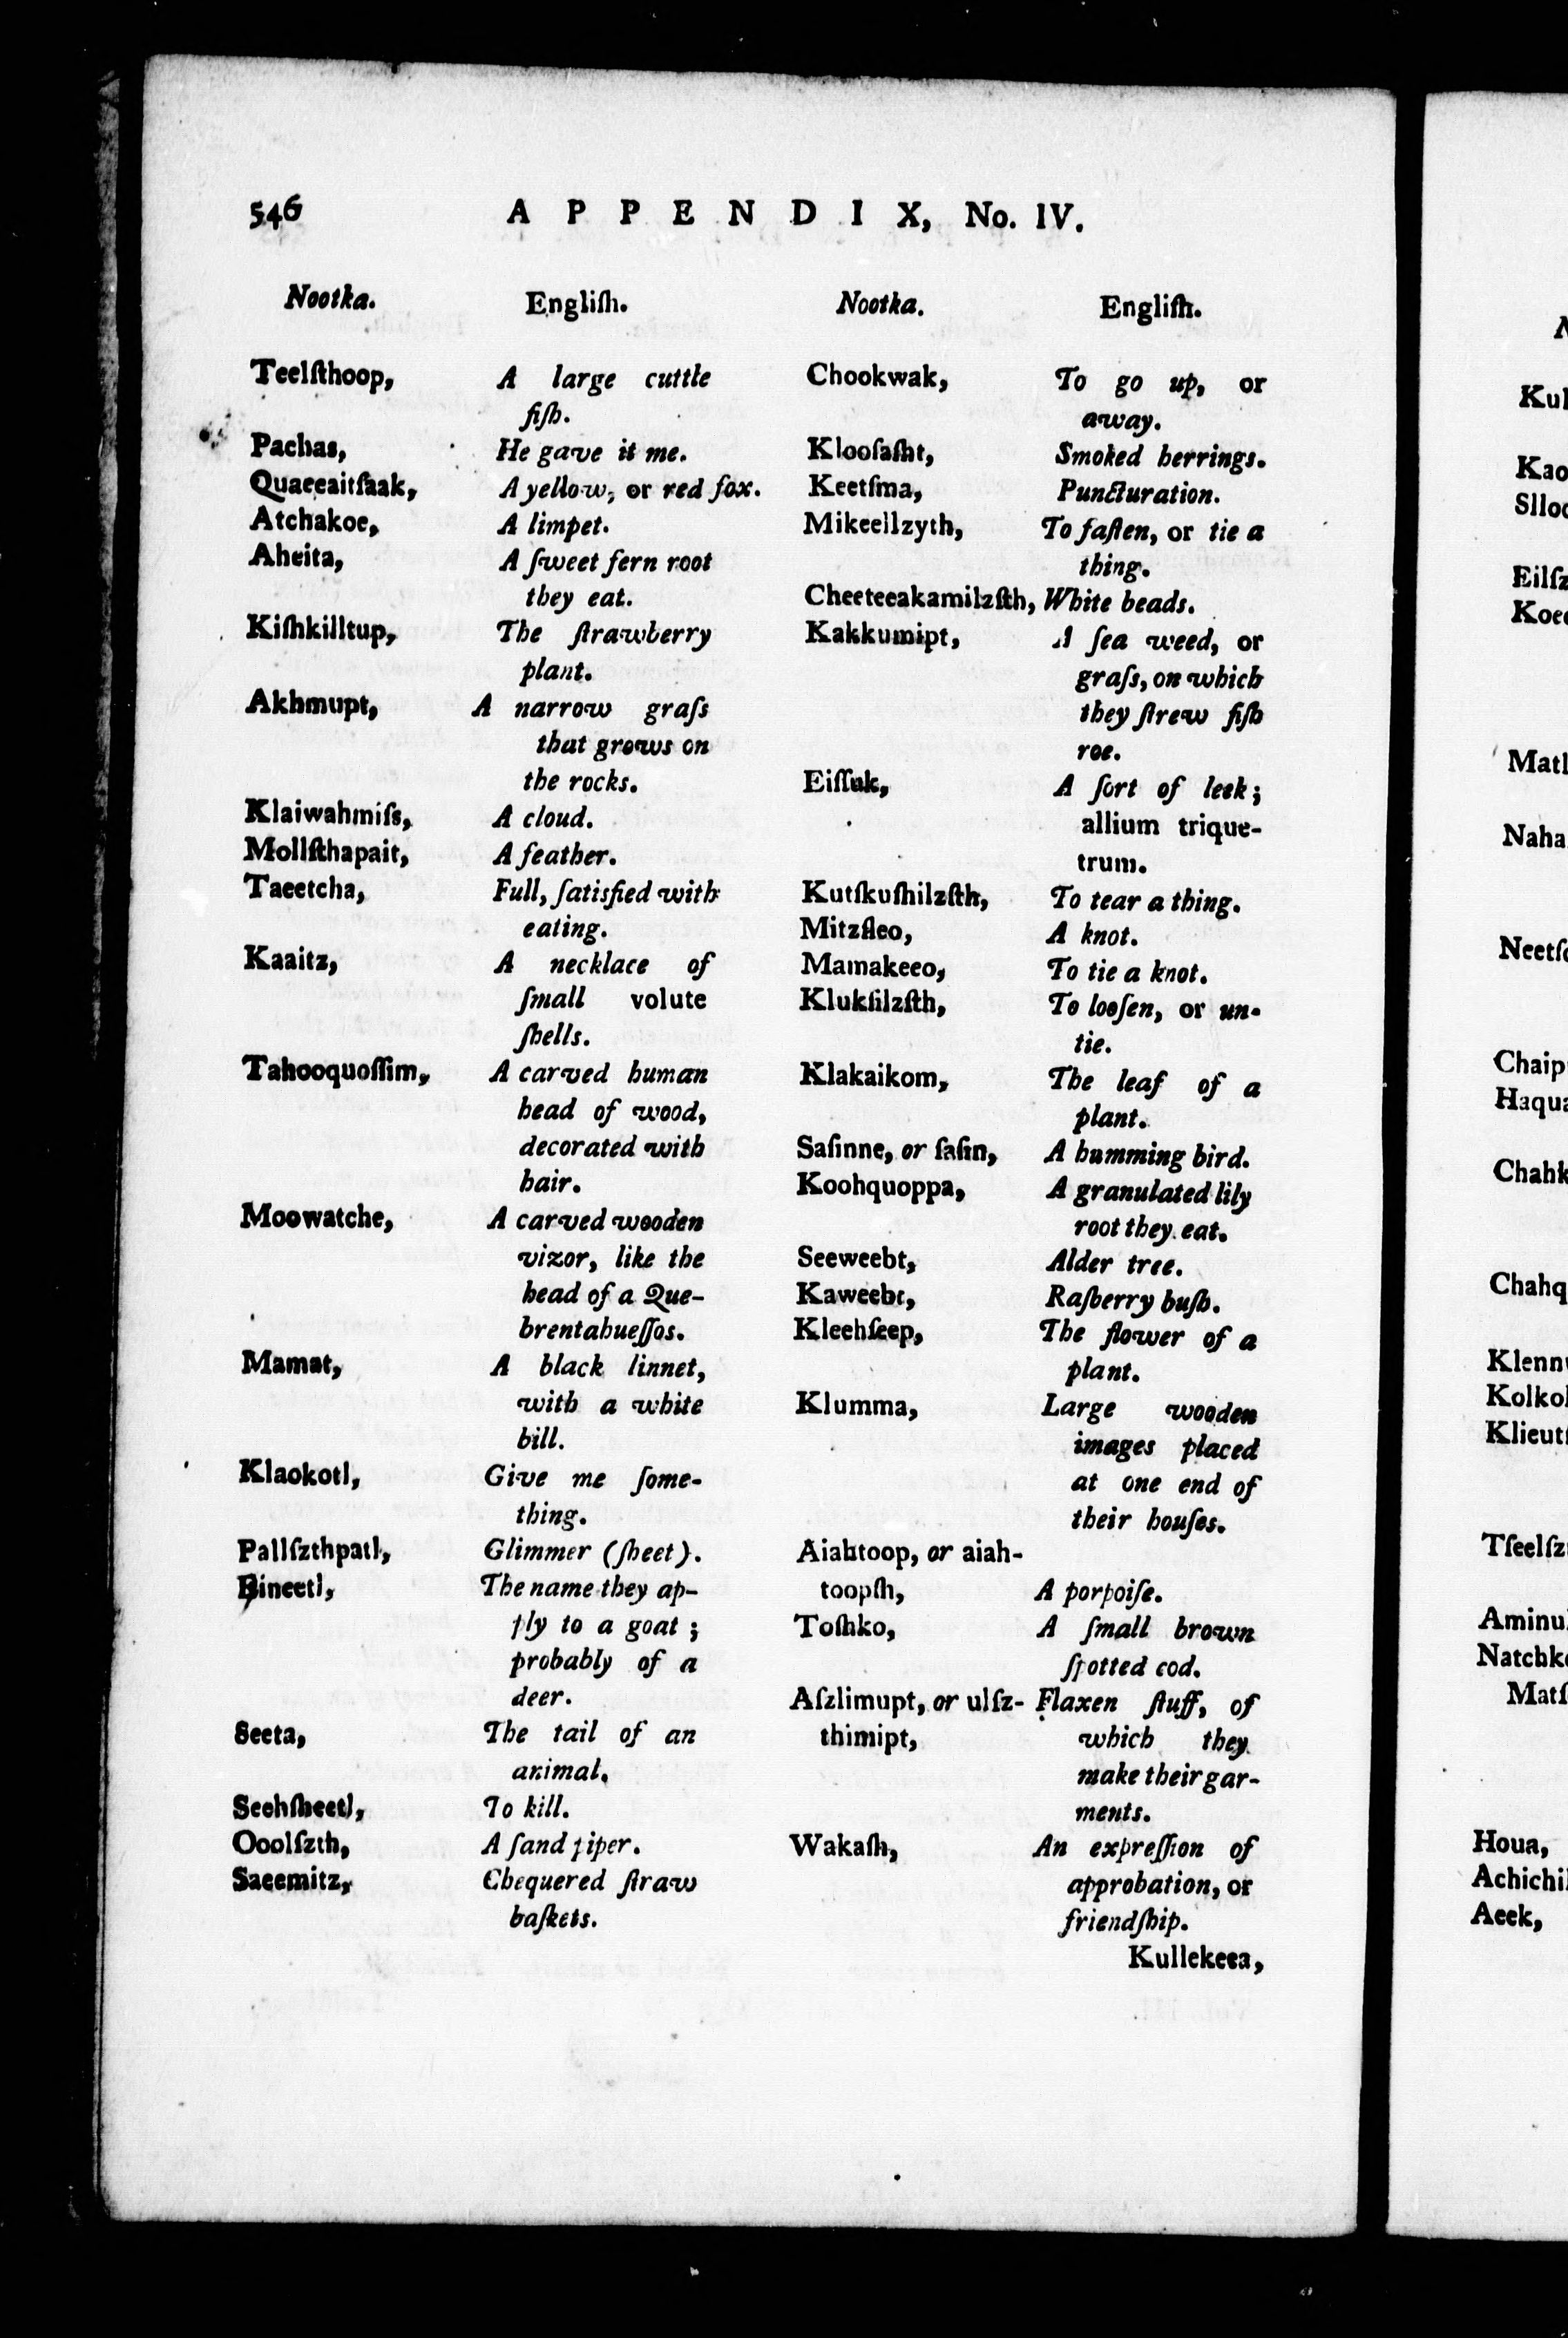 546 APPENDIX, No. IV.
Nootka. Engliſh.
Teelſthoop, A large cuttle
fiſh.
Pachas, He gave it me.
Quaeeaitſaak, A yellow, or red fox.
Atchakoe, A limpet.
Aheita, A ſweet fern root
they eat.
Kiſhkilltup, The ſtrawberry
plant.
Akhmupt, A narrow graſs
that grows on
the rocks.
Klaiwahmiſs, A cloud.
Mollſthapait, A feather.
Taeetcha, Full, ſatisfied with
eating.
Kaaitz, A necklace of
ſmall volute
ſhells.
Tahooquoſſim, A carved human
head of wood,
decorated with
hair.
Moowatche, A carved wooden
vizor, like the
head of a Que-
brentahueſſos.
Mamat, A black linnet,
with a white
bill.
Klaokotl, Give me ſome-
thing.
Pallſzthpatl, Glimmer (ſheet).
Eineetl, The name they ap-
ply to a goat ;
probably of a
deer.
Seeta, The tail of an
animal.
Seehſheetl, To kill.
Ooolſzth, A ſand piper.
Saeemitz, Chequered ſtraw
baſkets.
Nootka. Engliſh.
Chookwak, To go up, or
away.
Klooſaſht, Smoked herrings.
Keetſma, Puncturation.
Mikeellzyth, To faſten, or tie a
thing.
Cheeteeakamilzſth, White beads.
Kakkumipt, A ſea weed, or
graſs, on which
they ſtrew fiſh
roe.
Eiſſuk, A ſort of leek ;
allium trique-
trum.
Kutſkuſhilzſth, To tear a thing.
Mitzſleo, A knot.
Mamakeeo, To tie a knot.
Klukſilzſth, To looſen, or un-
tie.
Klakaikom, The leaf of a
plant.
Saſinne, or ſaſin, A humming bird.
Koohquoppa, A granulated lily
root they eat.
Seeweebt, Alder tree.
Kaweebt, Raſberry buſh.
Kleehſeep, The flower of a
plant.
Klumma, Large wooden
images placed
at one end of
their houſes.
Aiahtoop, or aiah-
toopſh, A porpoiſe.
Toſhko, A ſmall brown
ſpotted cod.
Aſzlimupt, or ulſz- Flaxen ſtuff, of
thimipt, which they
make their gar-
ments.
Wakaſh, An expreſſion of
approbation, or
friendſhip.
Kullekeea,
Kul
Kao
Slloo
Eilſz
Koee
Matl
Naha
Neetſ
Chaip
Haqua
Chahk
Chahq
Klenn
Kolkol
Klieut
Tſeelſz
Aminu
Natchk
Matſ
Houa,
Achichil
Aeek,